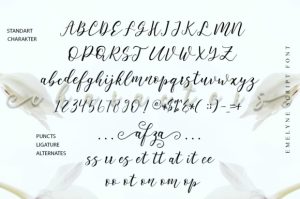 STANDART
CHARAKTER
ABCDEFGHIJKLMN
OPQRSTUVWXYZ
abcdefghijklmnopqrstuvwxyz
1234567890!
PUNCTS
LIGATURE
ALTERNATES
... afza ...
ss u es et tt at it ee
oo ot on om op
EMELYNE SCRIPT FONT